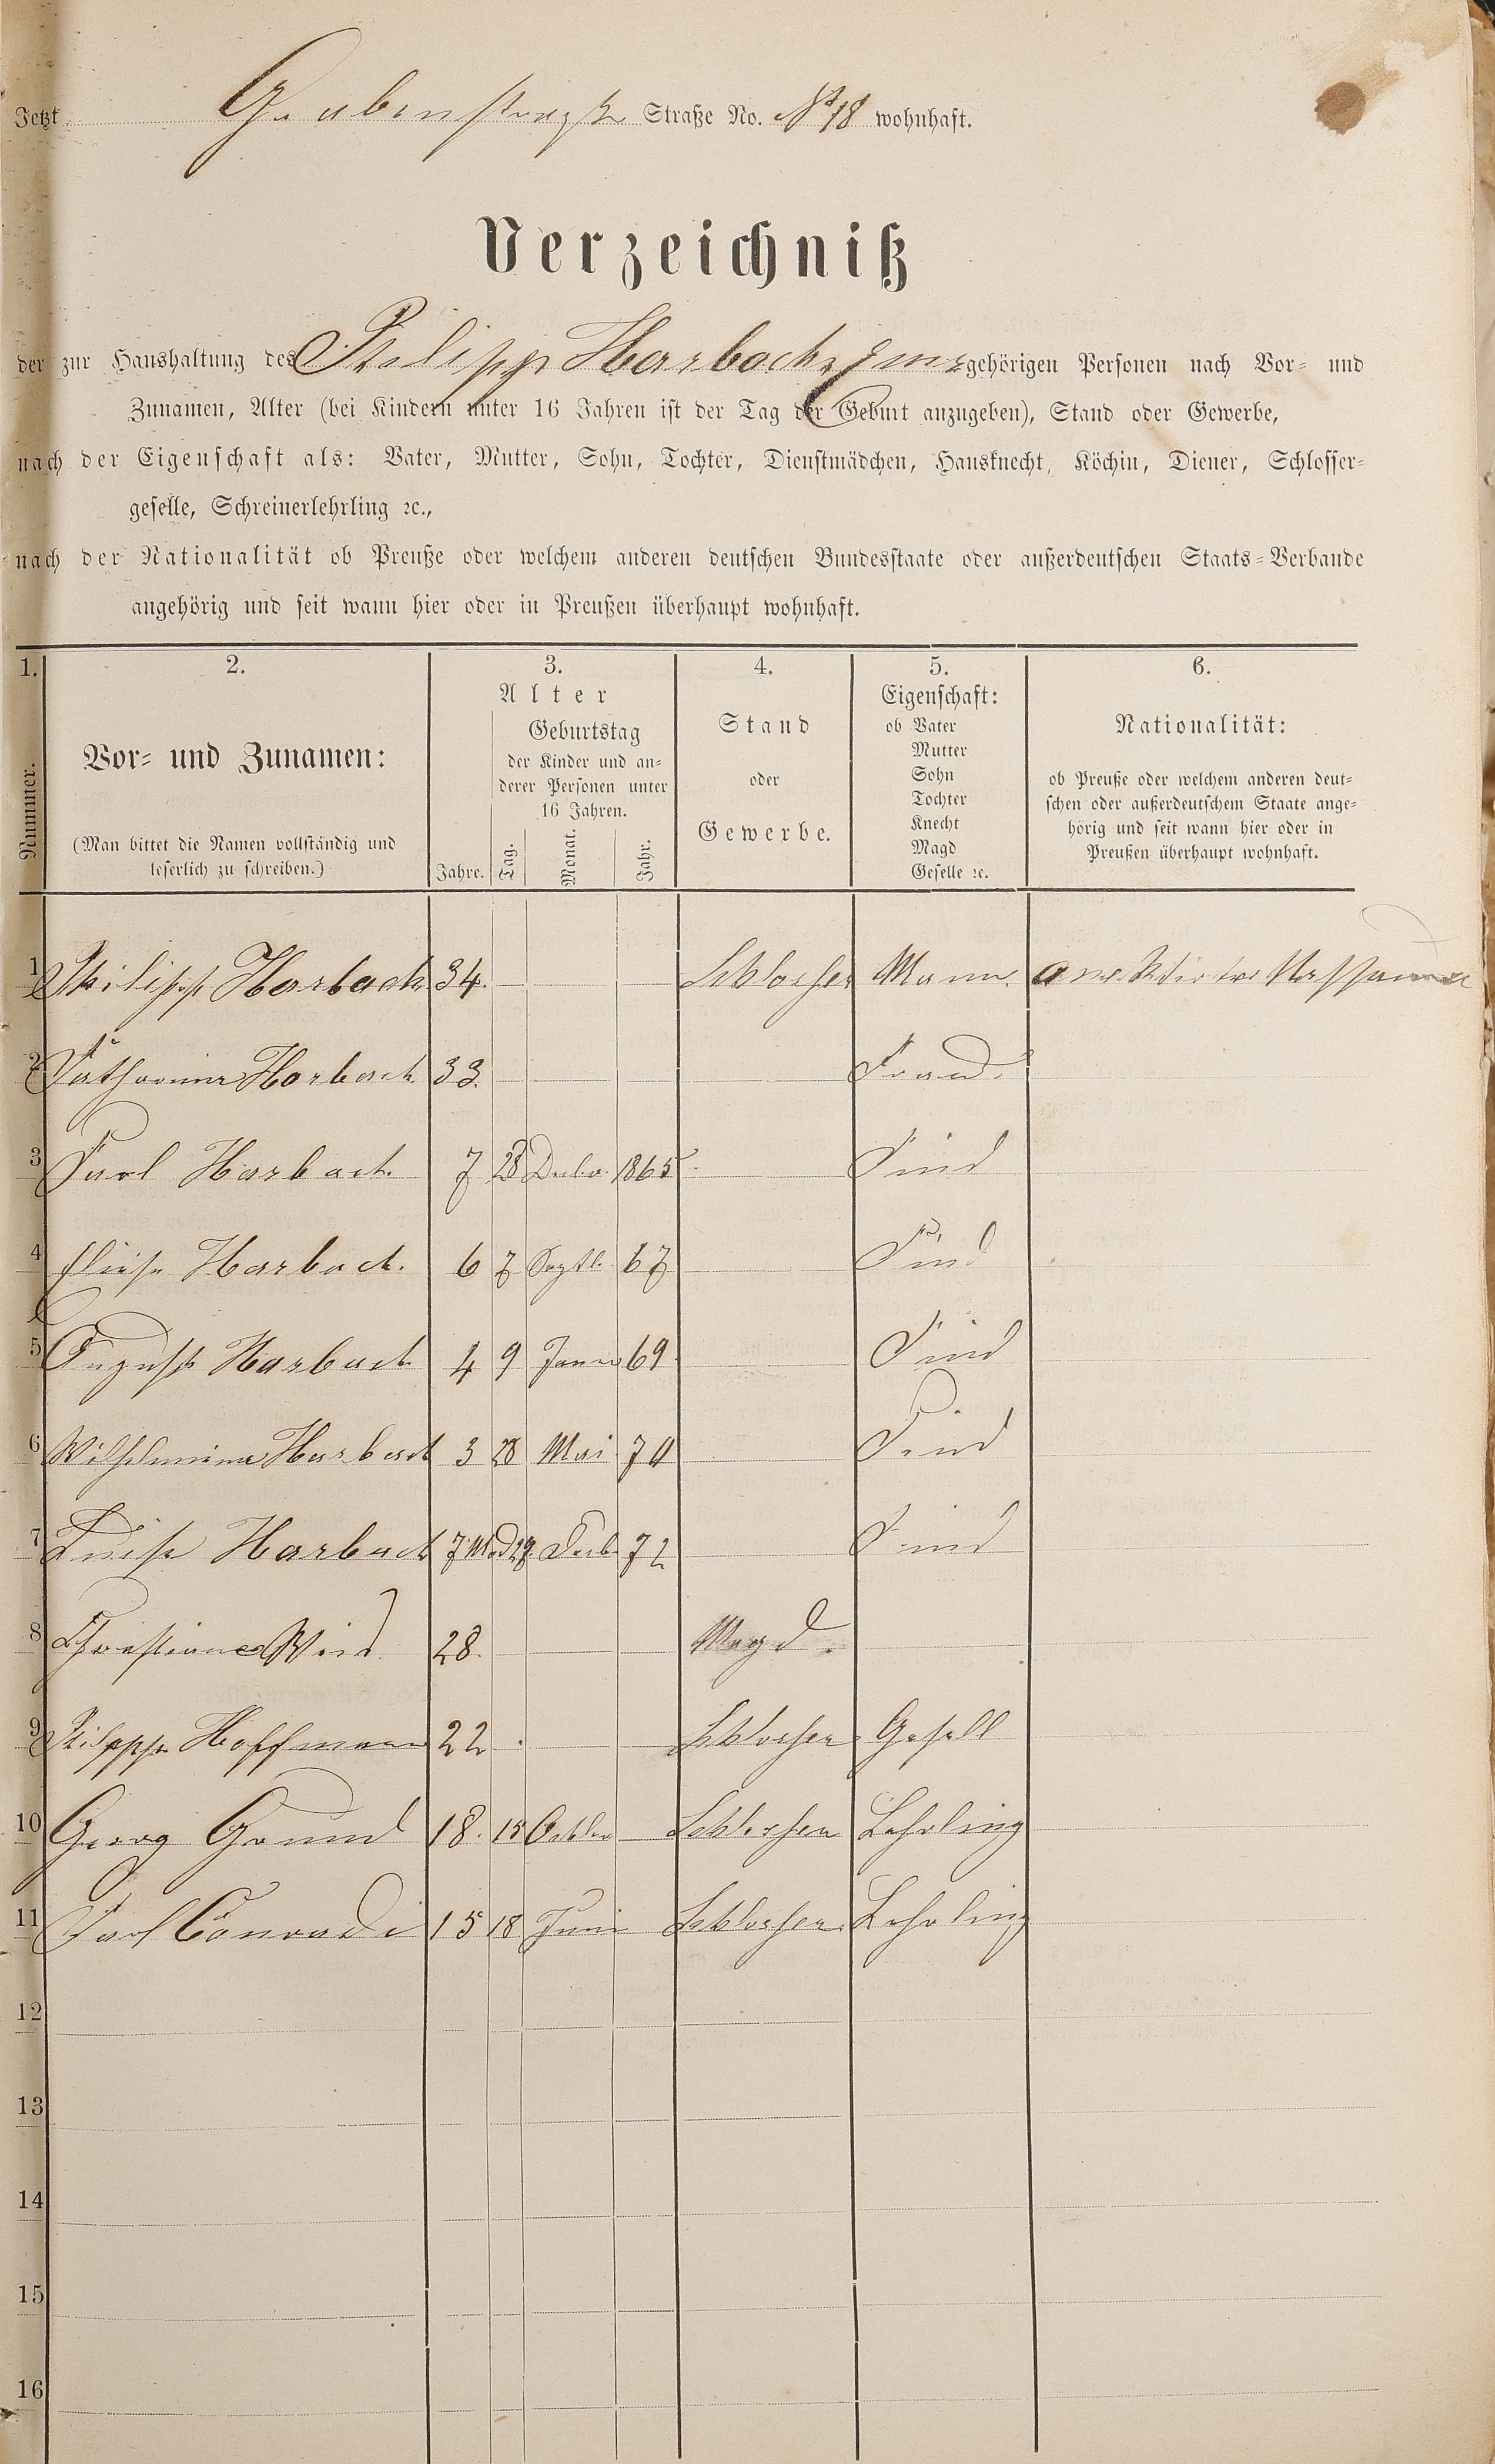 Jetzt Grabenstraße Straße No. No 18 wohnhaft.
Verzeichniß
der zur Haushaltung des Philipp Harbach, gehörigen Personen nach Vor- und
Zunamen, Alter (bei Kindern unter 16 Jahren ist der Tag der Geburt anzugeben), Stand oder Gewerbe,
nach der Eigenschaft als: Vater, Mutter, Sohn, Tochter, Dienstmädchen, Hausknecht, Köchin, Diener, Schlosser-
geselle, Schreinerlehrling ꝛc.,
nach der Nationalität ob Preuße oder welchem anderen deutschen Bundesstaate oder außerdeutschen Staats-Verbande
angehörig und seit wann hier oder in Preußen überhaupt wohnhaft.
1. 2. 3. 4. 5. 6.
Nummer.
Vor- und Zunamen:
(Man bittet die Namen vollständig und
leserlich zu schreiben.)
Alter
Jahre.
Geburtstag
der Kinder und an-
derer Personen unter
16 Jahren.
Tag. Monat. Jahr.
Stand
oder
Gewerbe.
Eigenschaft:
ob Vater
Mutter
Sohn
Tochter
Knecht
Magd
Geselle ꝛc.
Nationalität:
ob Preuße oder welchem anderen deut-
schen oder außerdeutschem Staate ange-
hörig und seit wann hier oder in
Preußen überhaupt wohnhaft.
1 Philipp Harbach 34. Schlosser Mann.
2 Katharina Harbach 33. Frau.
3 Karl Harbach 7 28 1865 Kind
4 Eliese Harbach. 6 7 Septb. 67 Kind
5 August Harbach 4 9 Janu 69 Kind
6 Wilhelmine Harbach 3 28 Mai 70 Kind
7 Luise Harbach 7 Mod 29. 72 Kind
8 Christiane 28. Magd.
9 Philipp Hoffmann 22 Schlosser Gesell
10 Georg Grund 18. 15 Octbr Schlosser Lehrling
11 Karl Conradi 15 18 Juni Schlosser Lehrling
12
13
14
15
16